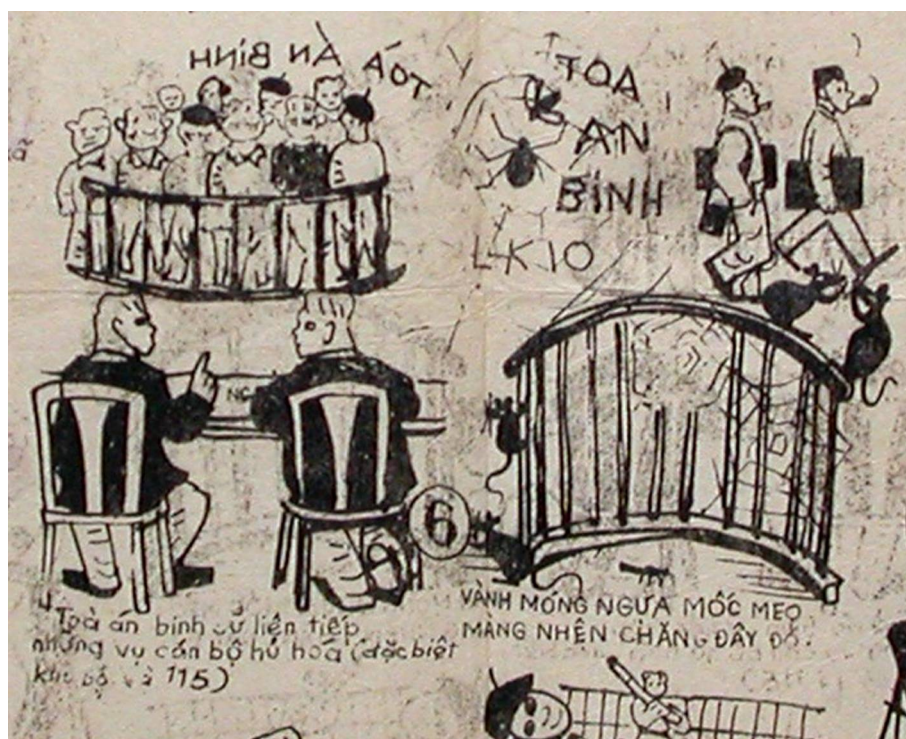 TOÁ ÁN BINH
TOA
AN
BINH
LK 10
NG
6
Toà án binh xử liên tiếp
những vụ cán bộ hủ hoá (đặc biệt
khu bộ và 115)
VÀNH MÓNG NGỰA MỐC MEO
MÀNG NHỆN CHĂNG ĐẦY ĐÓ.